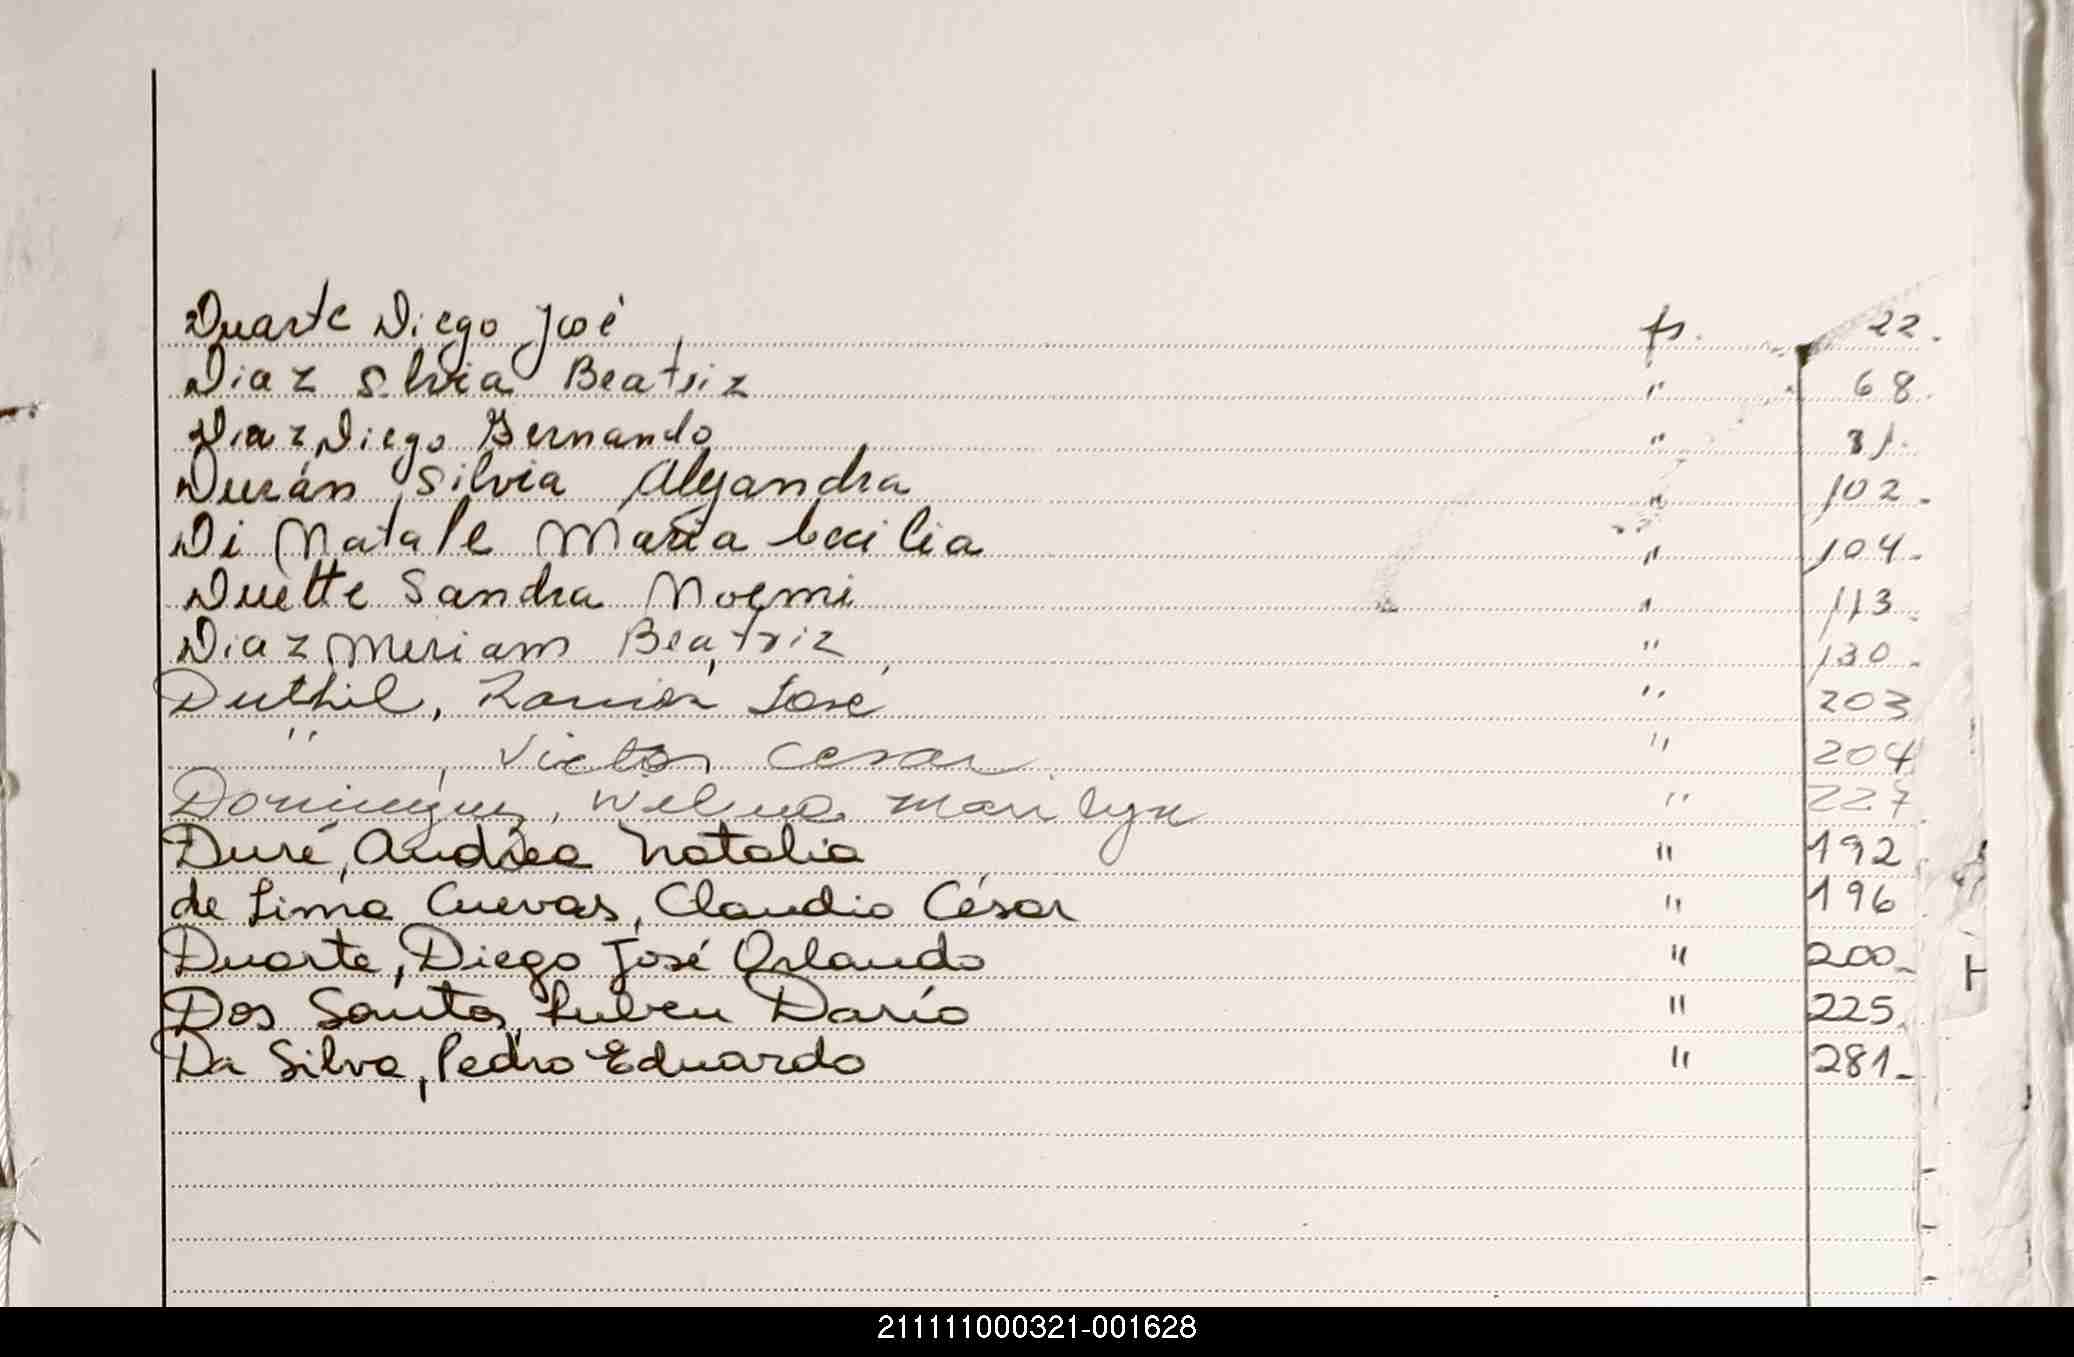 Duarte Diego José fs. 22.
Diaz Silvia Beatriz " 68.
Diaz Diego Hernando " 81.
Durán Silvia Alejandra " 102.
Di Natale Maria Cecilia " 104.
Duette Sandra Noemi " 113.
Diaz Miriam Beatriz " 130.
Duthil, Ramón José " 203
" , Victor Cesar " 204
Dominguez, Wilma Marilyn " 227
Duré, Andrea Natalia " 192
de Lima Cuevas, Claudio César " 196
Duarte, Diego José Orlando " 200_
Dos Santos, Ruben Darío " 225
Da Silva, Pedro Eduardo " 281_
H
211111000321-001628